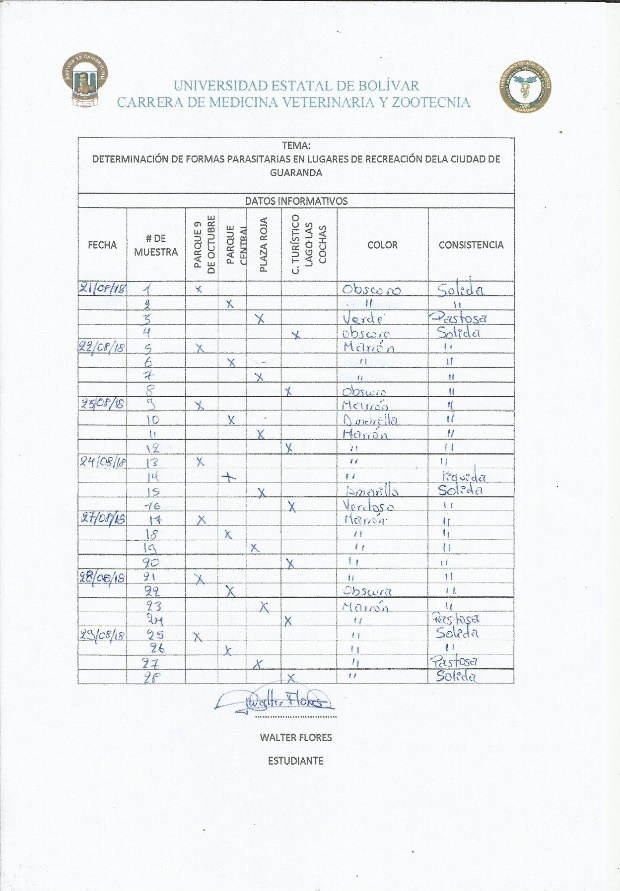 UNIVERSIDAD ESTATAL DE BOLÍVAR
CARRERA DE MEDICINA VETERINARIA Y ZOOTECNIA
TEMA:
DETERMINACIÓN DE FORMAS PARASITARIAS EN LUGARES DE RECREACIÓN DELA CIUDAD DE
GUARANDA
DATOS INFORMATIVOS
FECHA # DE MUESTRA PARQUE 9 DE OCTUBRE PARQUE CENTRAL PLAZA ROJA C. TURÍSTICO LAGO LAS COCHAS COLOR CONSISTENCIA
21/08/18 1 x Obscuro Solida
2 x " "
3 x Verde Pastosa
4 x obscuro Solida
22/08/18 5 x Marrón "
6 x - " "
7 x " "
8 x Obscuro "
23/08/18 9 x Marrón "
10 x Amarilla "
11 x Marrón "
12 x " "
24/08/18 13 x " "
14 x " liquida
15 x Amarillo Solida
16 x Verdoso "
27/08/18 17 x Marrón "
18 x " "
19 x " "
20 x " "
28/08/18 21 x " "
22 x Obscura "
23 x Marrón "
24 x " Pastosa
29/08/18 25 x " Solida
26 x " "
27 x " Pastosa
28 x " Solida
Walter Flores
WALTER FLORES
ESTUDIANTE